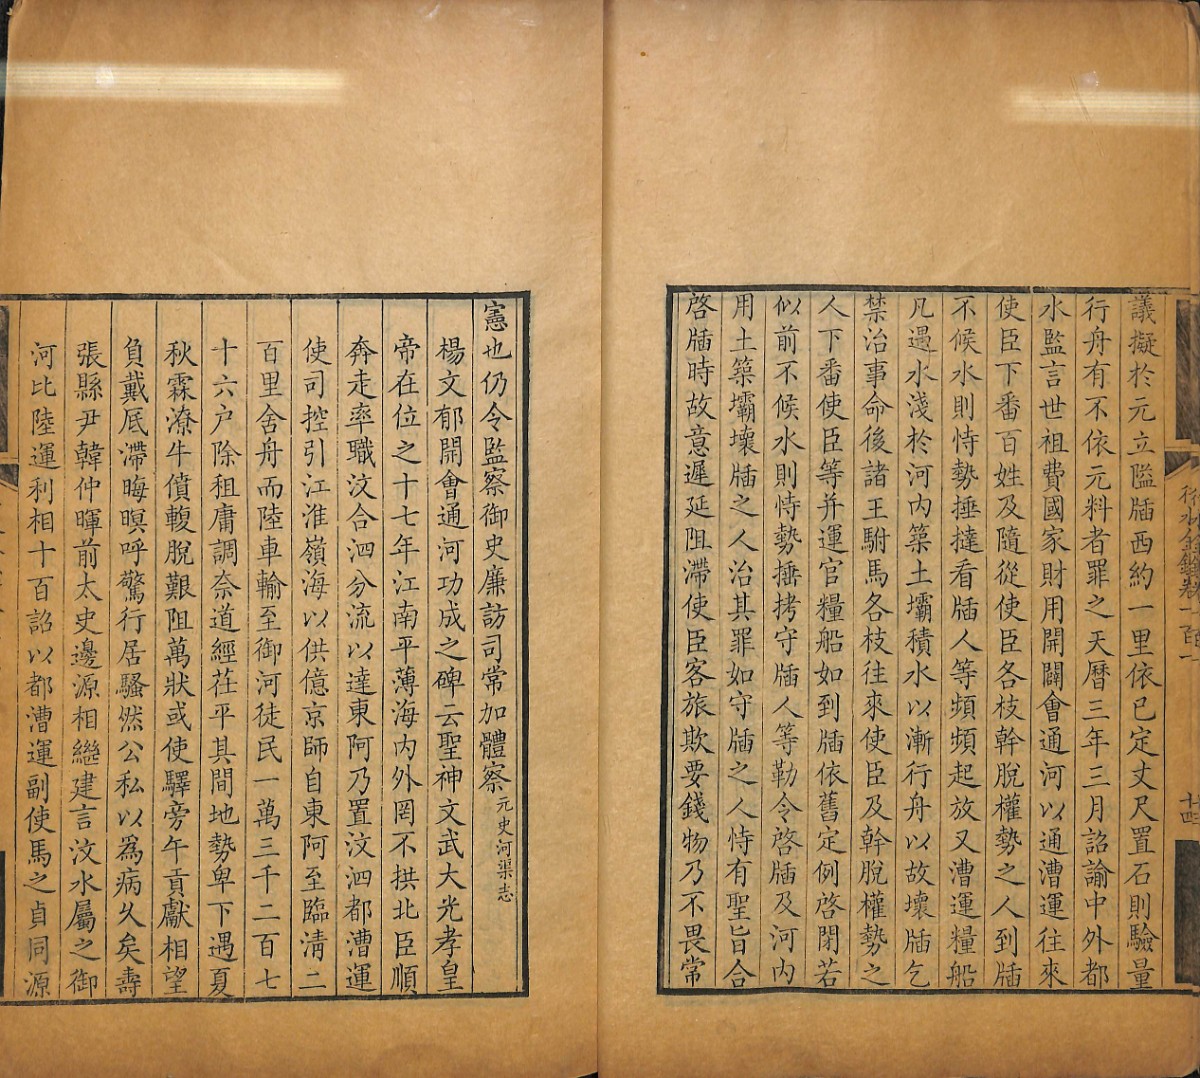 議擬於元立隘牐西約一里依已定丈尺置石則驗量
行舟有不依元料者罪之天曆三年三月詔諭中外都
水監言世祖費國家財用開闢會通河以通漕運往來
使臣下番百姓及隨從使臣各枝幹脫權勢之人到牐
不候水則恃勢捶撻看牐人等頻頻起放又漕運糧船
凡遇水淺於河內築土壩積水以漸行舟以故壞牐乞
禁治事命後諸王駙馬各枝往來使臣及幹脫權勢之
人下番使臣等并運官糧船如到牐依舊定例啓閉若
似前不候水則恃勢捶拷守牐人等勒令啓牐及河內
用土築壩壞牐之人治其罪如守牐之人恃有聖旨合
啓牐時故意遲延阻滯使臣客旅欺要錢物乃不畏常
行水金鑑卷一百一
十四
憲也仍令監察御史廉訪司常加體察元史河渠志
楊文郁開會通河功成之碑云聖神文武大光孝皇
帝在位之十七年江南平薄海內外罔不拱北臣順
奔走率職汶合泗分流以達東阿乃置汶泗都漕運
使司控引江淮嶺海以供億京師自東阿至臨清二
百里舍舟而陸車輸至御河徒民一萬三千二百七
十六户除租庸調柰道經茌平其間地勢卑下遇夏
秋霖潦牛僨輹脫艱阻萬狀或使驛旁午貢獻相望
負戴底滯晦暝呼驚行居騷然公私以爲病久矣壽
張縣尹韓仲暉前太史邊源相繼建言汶水屬之御
河比陸運利相十百詔以都漕運副使馬之貞同源